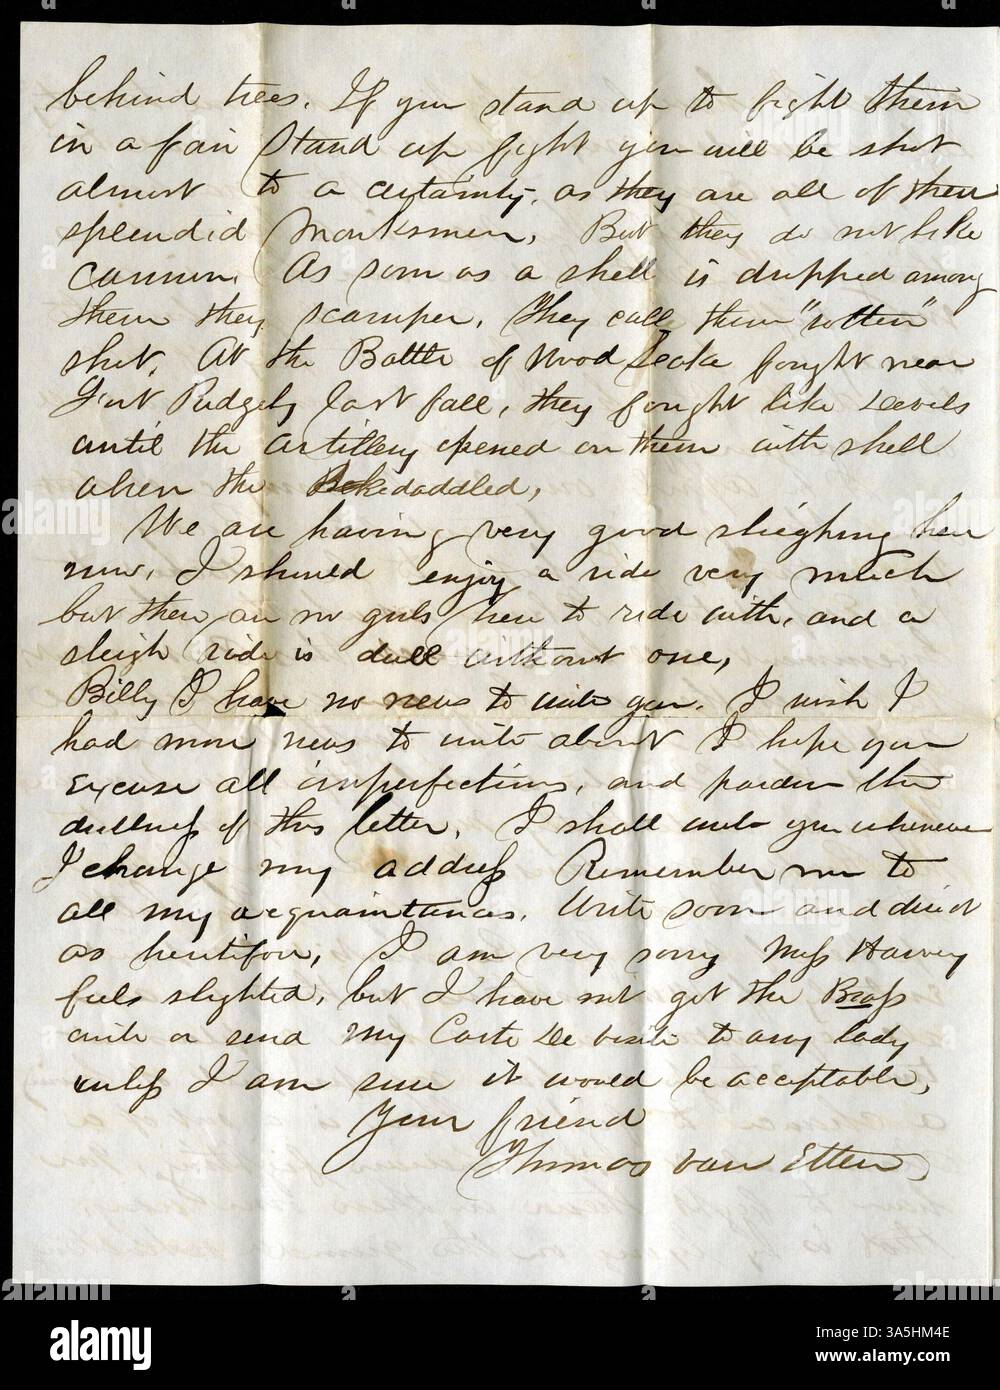 behind trees. If you stand up to fight them
in a fair stand up fight you will be shot
almost to a certainty, as they are all of them
splendid Marksmen, But they do not like
cannon. As soon as a shell is dropped among
them they scamper. They call them "rotten"
shot. At the Battle of Wood Leake fought near
Fort Ridgely last fall, they fought like Devels
until the artillery opened on them with shell
when the skedaddled,
We are having very good sleighing here
now, I should enjoy a ride very much
but there are no girls here to ride with, and a
sleigh ride is dull without one,
Billy I have no news to write you. I wish I
had more news to write about I hope you
Excuse all imperfections, and pardon the
dullness of this letter. I shall write you whenever
I change my address Remember me to
all my acquaintances. Write soon and direct
as heretifore, I am very sorry Miss Harvey
feels slighted, but I have not got the Brass
write or send my Carte De visite to any lady
unless I am sure it would be acceptable,
Your friend
Thomas van Etten
alamy
Image ID: 3A5HM4E
www.alamy.com